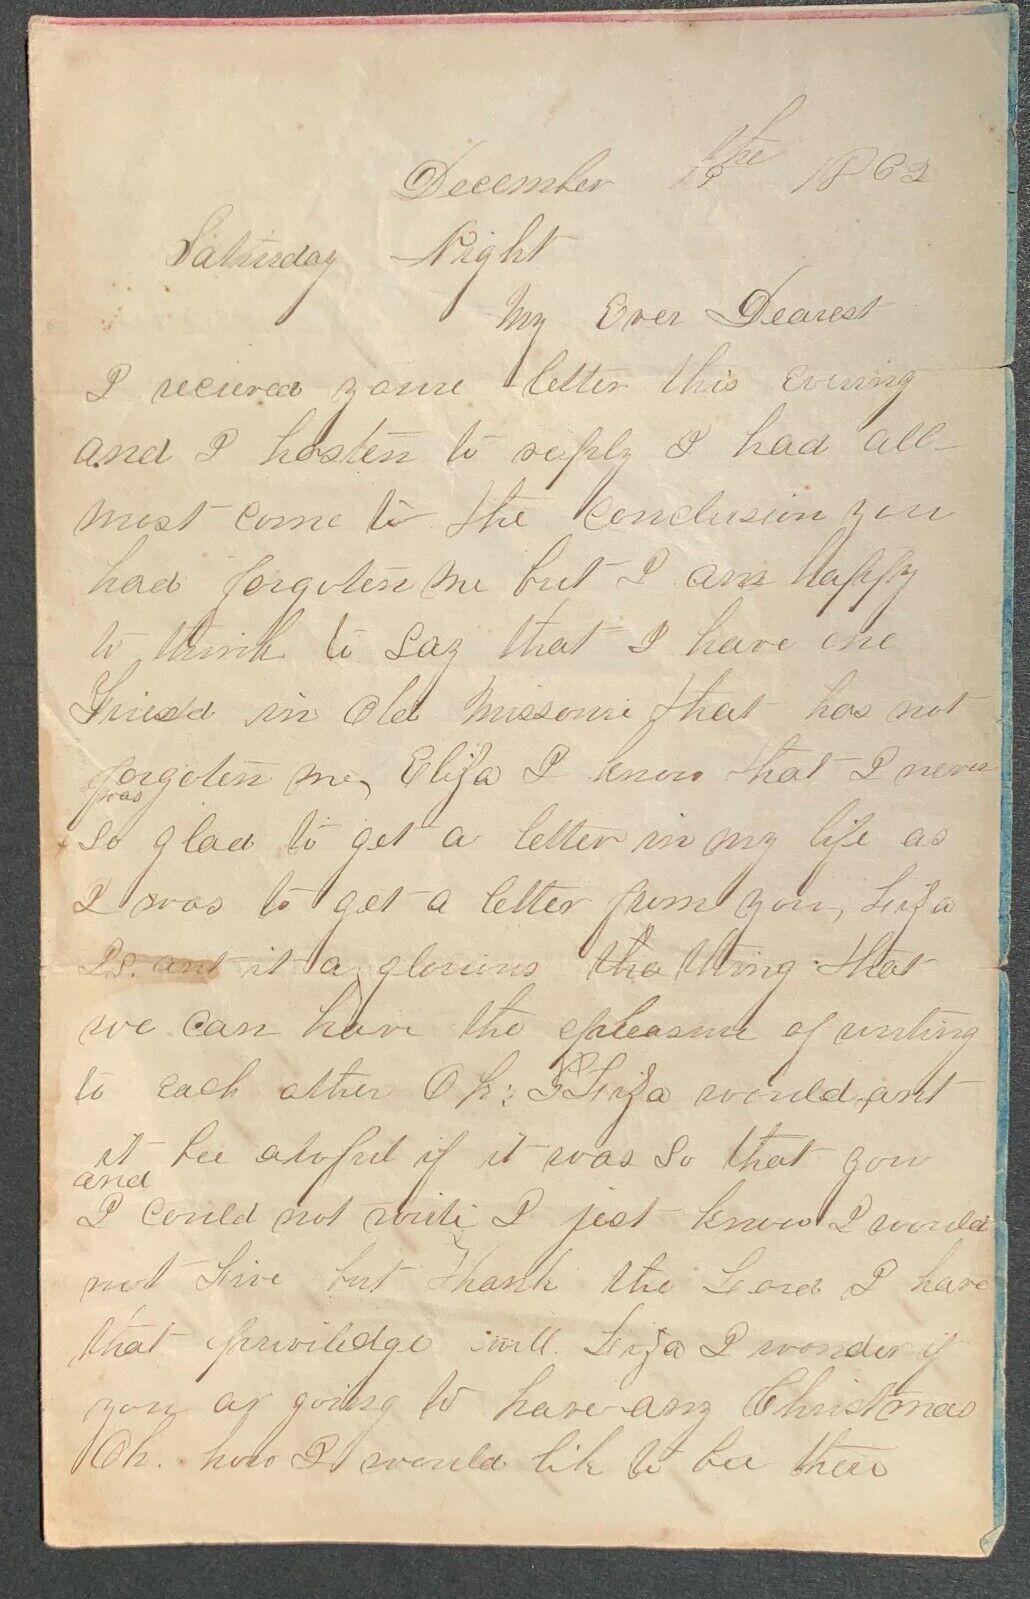 December 19 the 1863
Saturday Night
My Ever Dearest
I recieved youre letter this evening
and I hosten to reply I had all-
most come to the conclusion you
had forgoten me but I am happy
to think to say that I have one
Friend in Old Missouri that has not
forgoten me, Eliza I know that I never
was
so glad to get a letter in my life as
I was to get a letter from you, Liza
Is. ant it a glorious tha thing that
we can have the pleasure of writing
to each other Oh: Liza would ant
it bee awful if it was so that you
and
I could not write I jest know I would
not Live but Thank the Lord I have
that priviledge will. Liza I wonder if
you ar going to have any Christmas
Oh. how I would lik to bee there